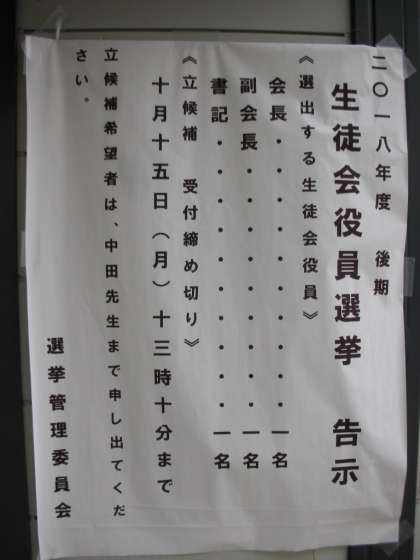 二〇一八年度 後期
生徒会役員選挙 告示
《選出する生徒会役員》
会長・・・・・・・・・・・一名
副会長・・・・・・・・・・一名
書記・・・・・・・・・・・一名
《立候補 受付締め切り》
十月十五日(月)十三時十分まで
立候補希望者は、中田先生まで申し出てくだ
さい。
選挙管理委員会